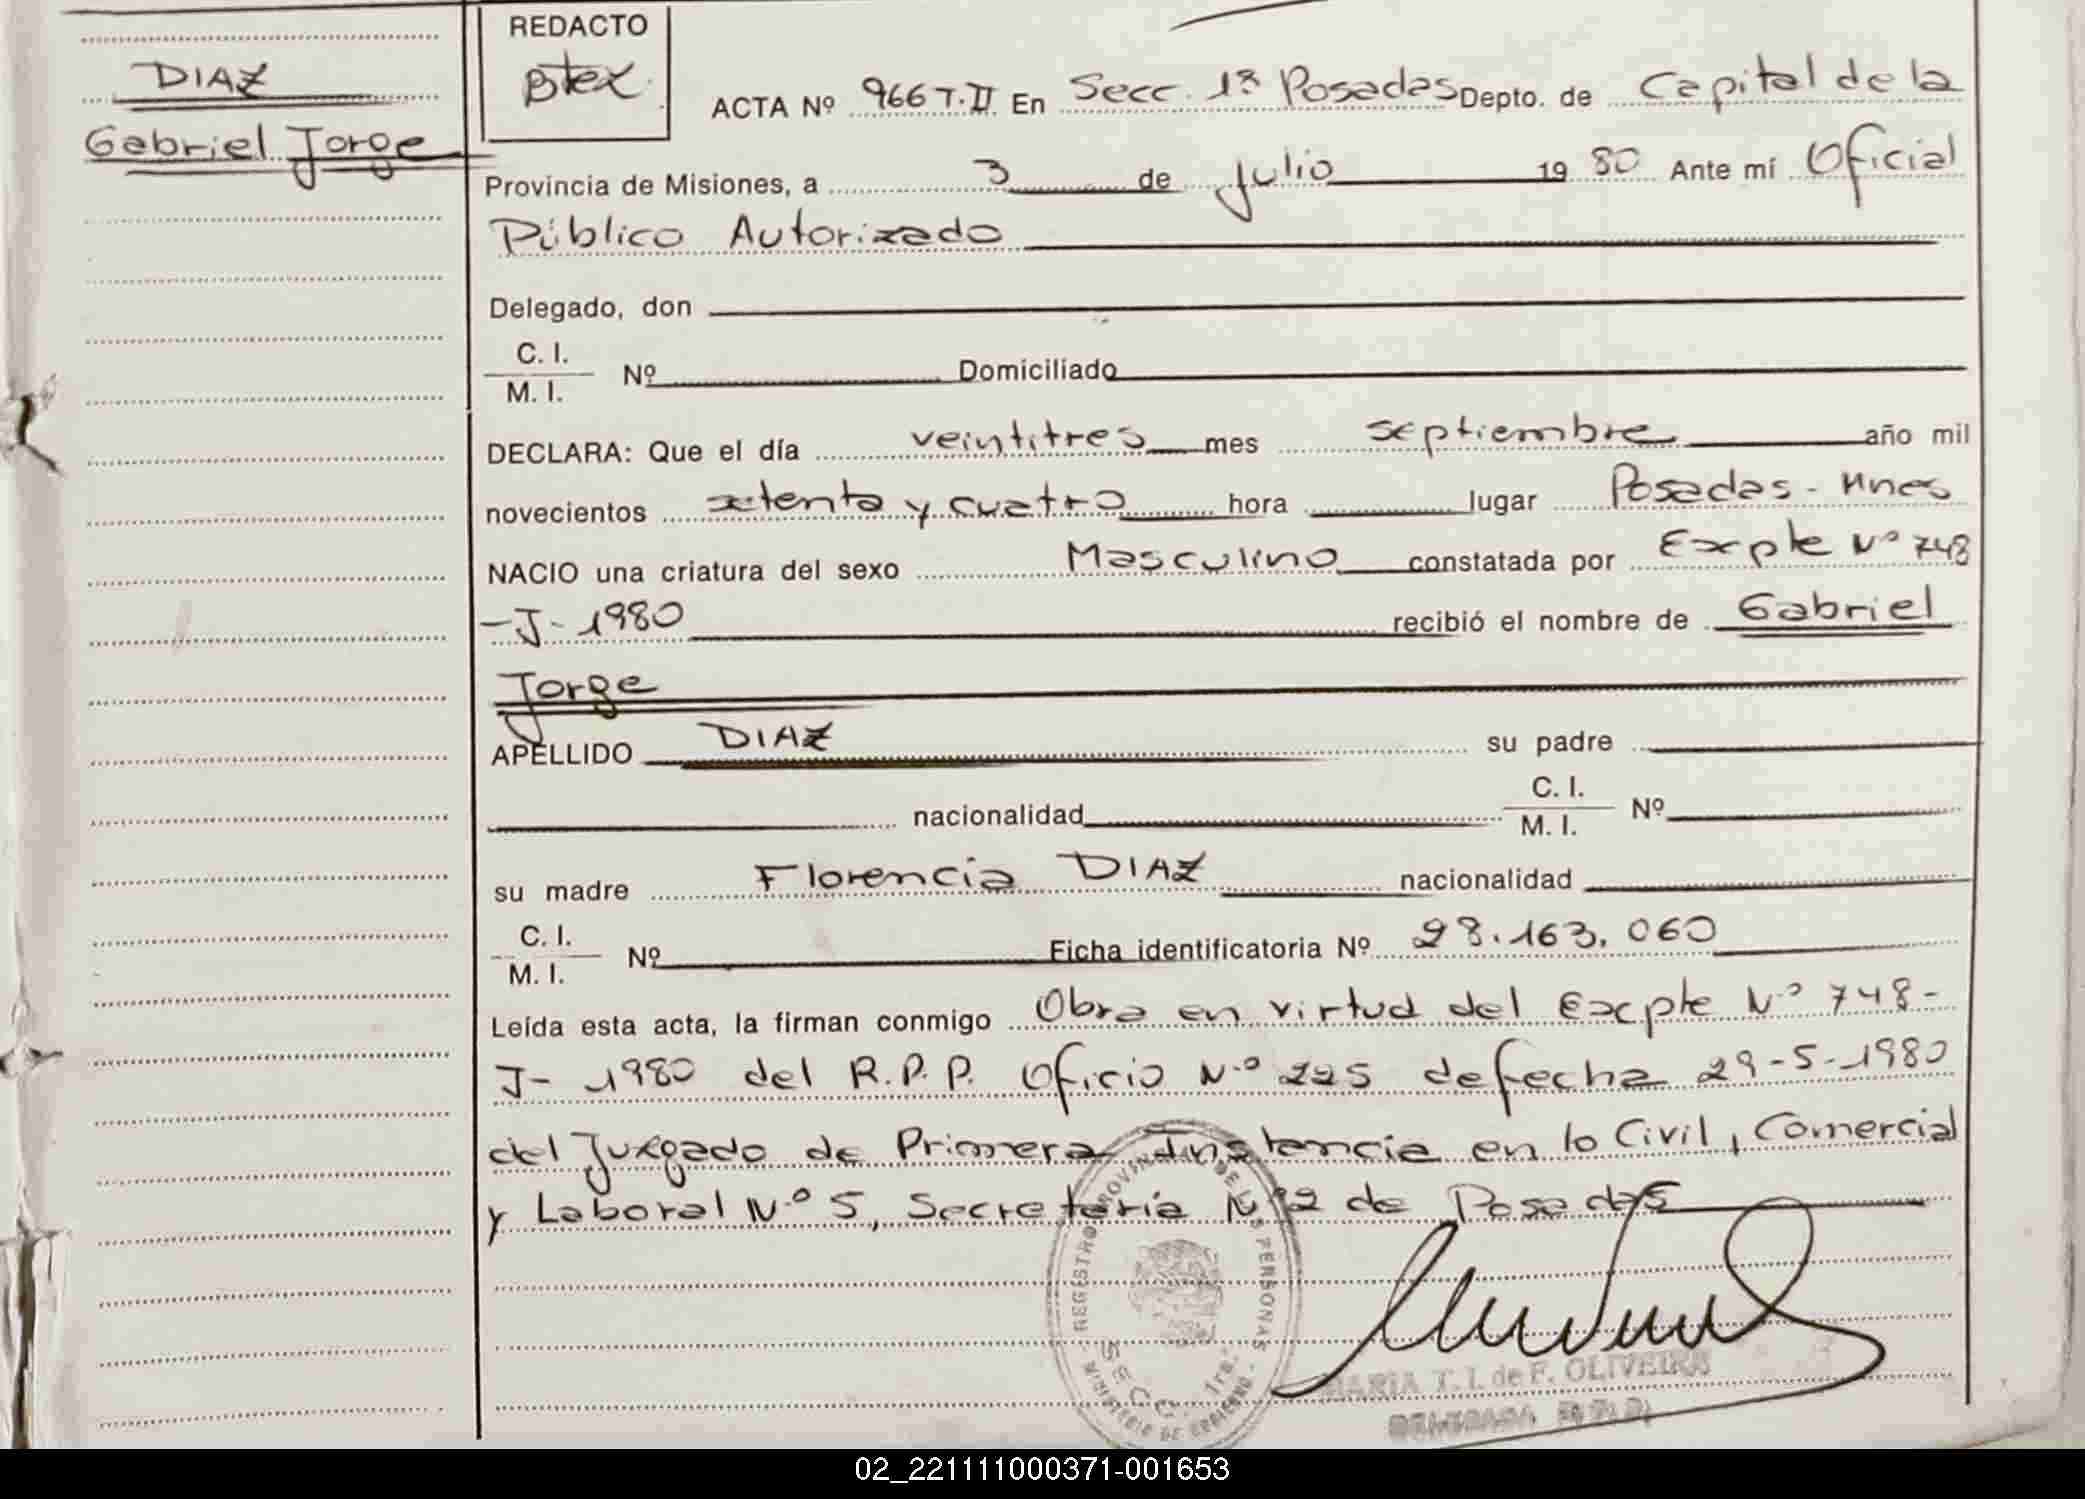 DIAZ
Gabriel Jorge
REDACTO
Btex.
ACTA Nº 966 T.II En Secc. 1ª Posadas Depto. de Capital de la
Provincia de Misiones, a 3 de Julio 19 80 Ante mí Oficial
Público Autorizado
Delegado, don
C. I.
M. I. Nº Domiciliado
DECLARA: Que el día veintitres mes septiembre año mil
novecientos setenta y cuatro hora lugar Posadas - Mnes
NACIO una criatura del sexo Masculino constatada por Expte Nº 748
-J- 1980 recibió el nombre de Gabriel
Jorge
APELLIDO DIAZ su padre
nacionalidad C. I.
M. I. Nº
su madre Florencia DIAZ nacionalidad
C. I.
M. I. Nº Ficha identificatoria Nº 28.163.060
Leída esta acta, la firman conmigo Obra en virtud del Expte Nº 748-
J- 1980 del R.P.P. Oficio Nº 225 de fecha 29-5-1980
del Juzgado de Primera Instancia en lo Civil, Comercial
y Laboral Nº 5, Secretaría Nº 2 de Posadas
REGISTRO PROVINCIAL DE LAS PERSONAS
SECC. 1ra.
MINISTERIO DE GOBIERNO
MARIA T. I. de F. OLIVEIRA
DELEGADA
02_221111000371-001653